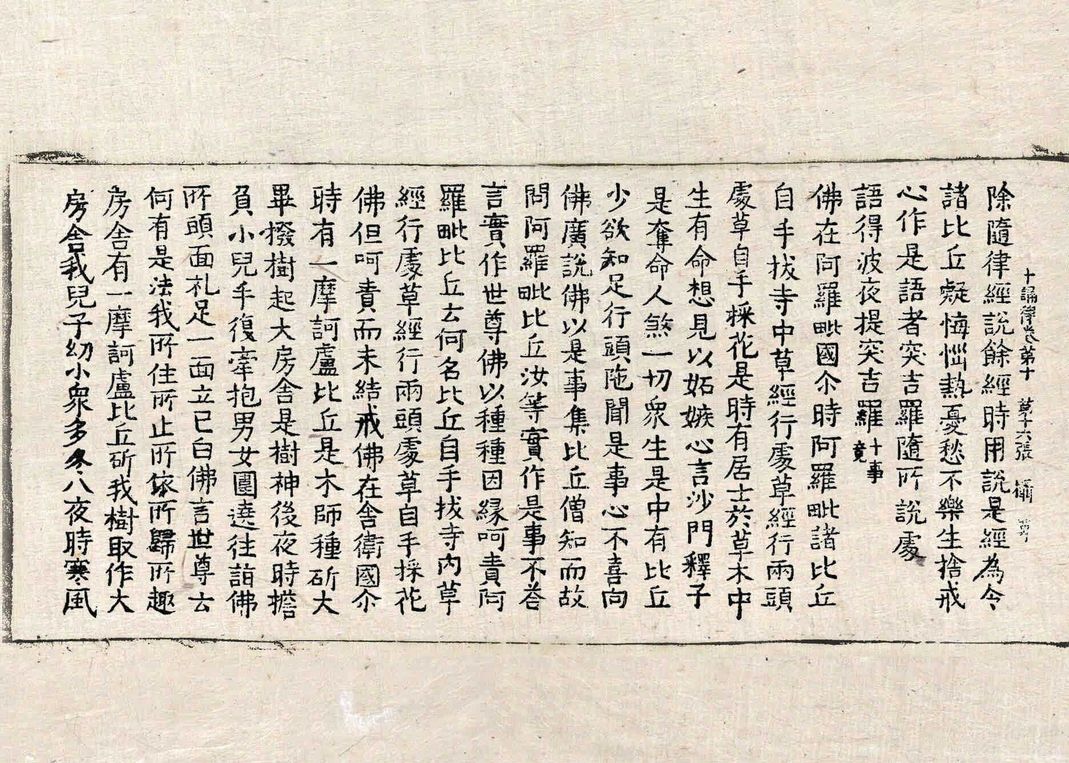 十誦律卷第十 第十六張 攝
除隨律經說餘經時用說是經為令
諸比丘癡悔惱熱憂愁不樂生捨戒
心作是語者突吉羅隨所說處
語得波夜提突吉羅十事竟
佛在阿羅毗國尒時阿羅毗諸比丘
自手拔寺中草經行處草經行兩頭
處草自手採花是時有居士於草木中
生有命想見以妬嫉心言沙門釋子
是奪命人煞一切衆生是中有比丘
少欲知足行頭陁聞是事心不喜向
佛廣說佛以是事集比丘僧知而故
問阿羅毗比丘汝等實作是事不荅
言實作世尊佛以種種因緣呵責阿
羅毗比丘云何名比丘自手拔寺内草
經行處草經行兩頭處草自手採花
佛但呵責而未結戒佛在舍衛國尒
時有一摩訶盧比丘是木師種斫大
畢撥樹起大房舍是樹神後夜時擔
負小兒手復牽抱男女圍遶往詣佛
所頭面礼足一面立已白佛言世尊云
何有是法我所住所止所依所歸所趣
房舍有一摩訶盧比丘斫我樹取作大
房舍我兒子幼小衆多冬八夜時寒風